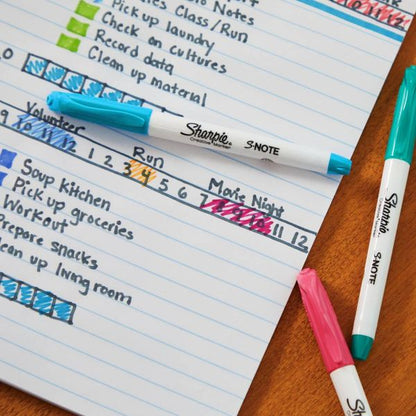 Notes
Class/Run
Pick up laundry
Check on cultures
Record data
Clean up material
10 11 12
Volunteer
9 10 11 12 1 2 3 4 5 6 7 8 9 10 11 12
Run
Movie Night
Soup kitchen
Pick up groceries
Workout
Prepare snacks
Clean up living room
Sharpie
Creative Marker
S·NOTE
Sharpie
S·NOTE
Sharpie